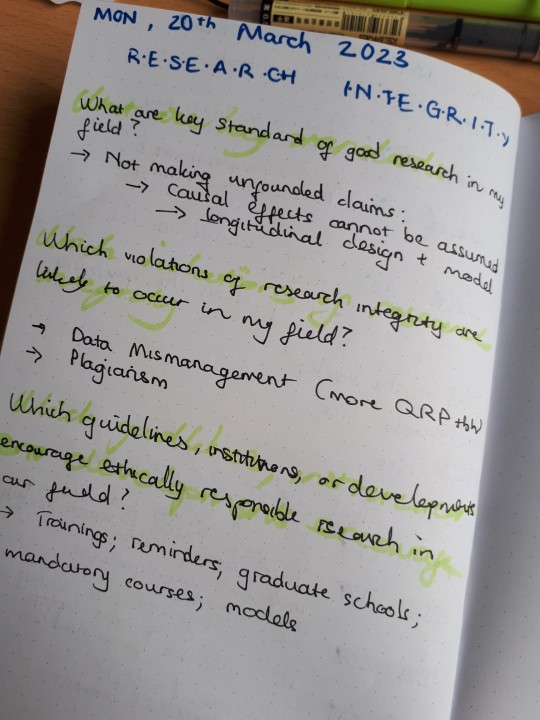 MON, 20th March 2023
R.E.S.E.A.R.CH I.N.T.E.G.R.I.T.y
What are key standard of good research in my
field?
→ Not making unfounded claims:
→ Causal effects cannot be assumed
→ longitudinal design + model
Which violations of research integrity are
likely to occur in my field?
→ Data Mismanagement (more QRP tbh)
→ Plagiarism
Which guidelines, institutions, or developments
encourage ethically responsible research in
our field?
→ Trainings; reminders; graduate schools;
mandatory courses; models